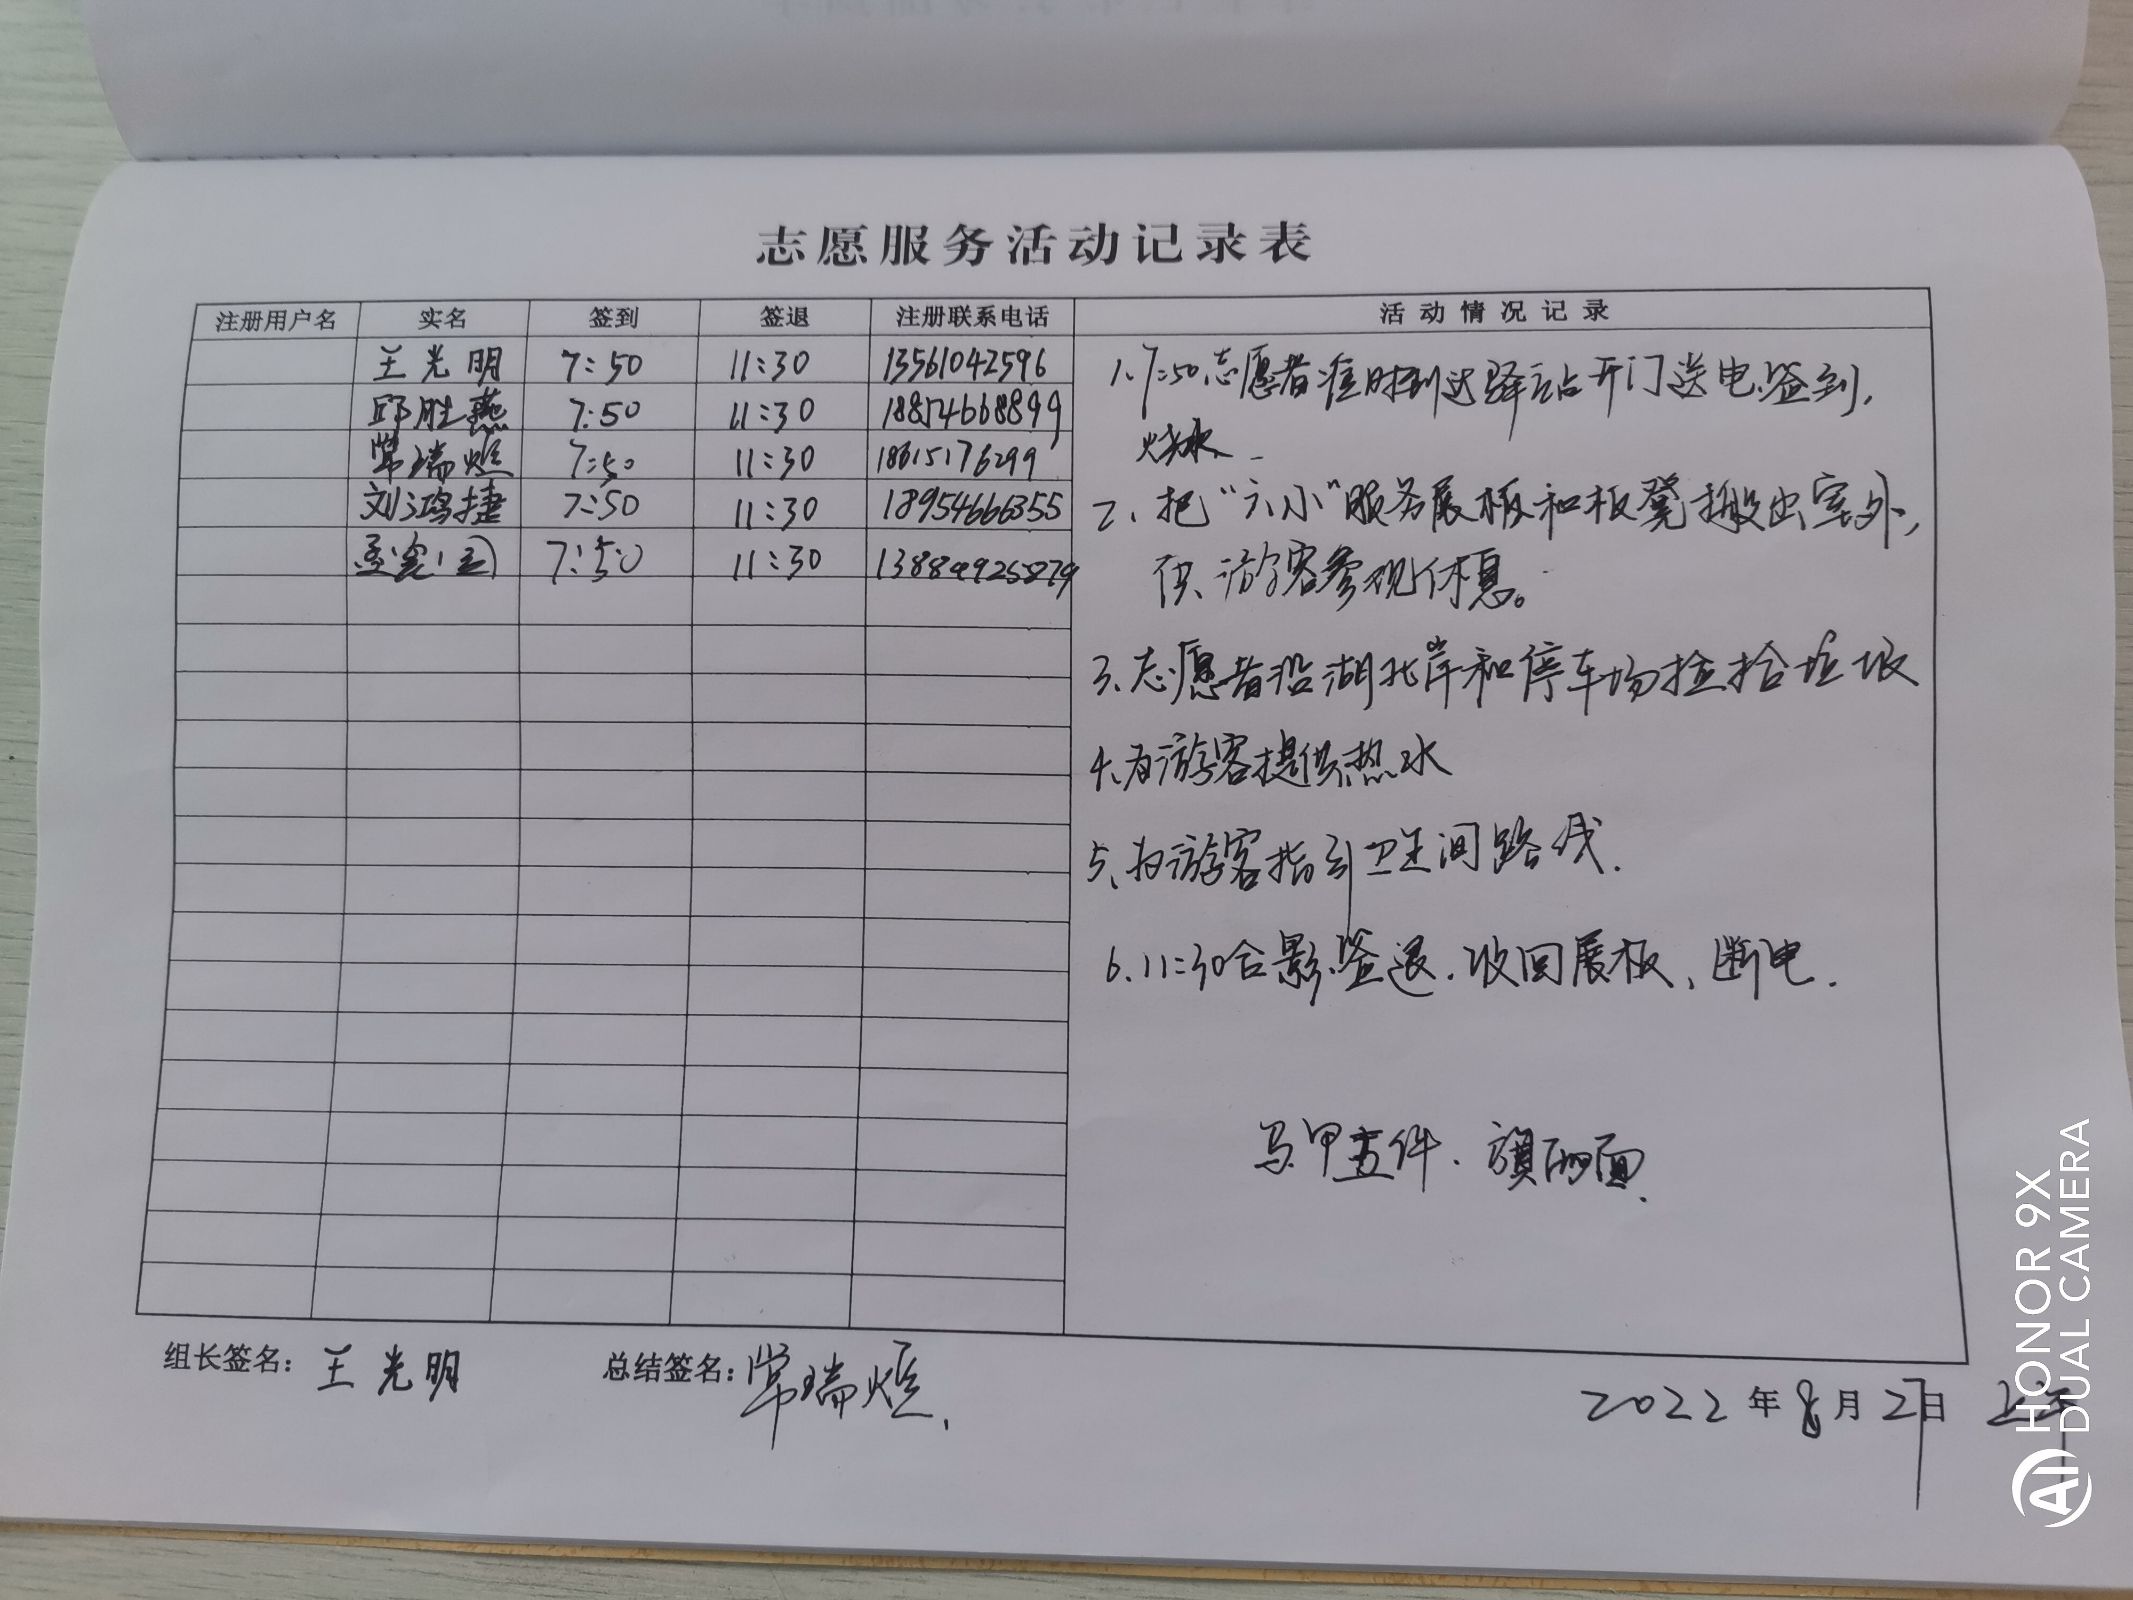 志愿服务活动记录表
注册用户名 实名 签到 签退 注册联系电话 活动情况记录
王光明 7:50 11:30 13561042596
邱胜燕 7:50 11:30 18854668899
常瑞烜 7:50 11:30 18615176299
刘鸿捷 7:50 11:30 18954666355
7:50 11:30
1、7:50志愿者准时到达驿站开门送电、签到,
烧水、
2、把“六小”服务展板和板凳搬出室外,
供游客参观休息。
3、志愿者沿湖北岸和停车场捡拾垃圾
4、为游客提供热水
5、为游客指引卫生间路线.
6、11:30合影、签退.收回展板、断电.
马甲五件.旗两面.
组长签名: 王光明 总结签名: 常瑞烜.
2022年8月27日 上午
HONOR 9X
DUAL CAMERA
AI